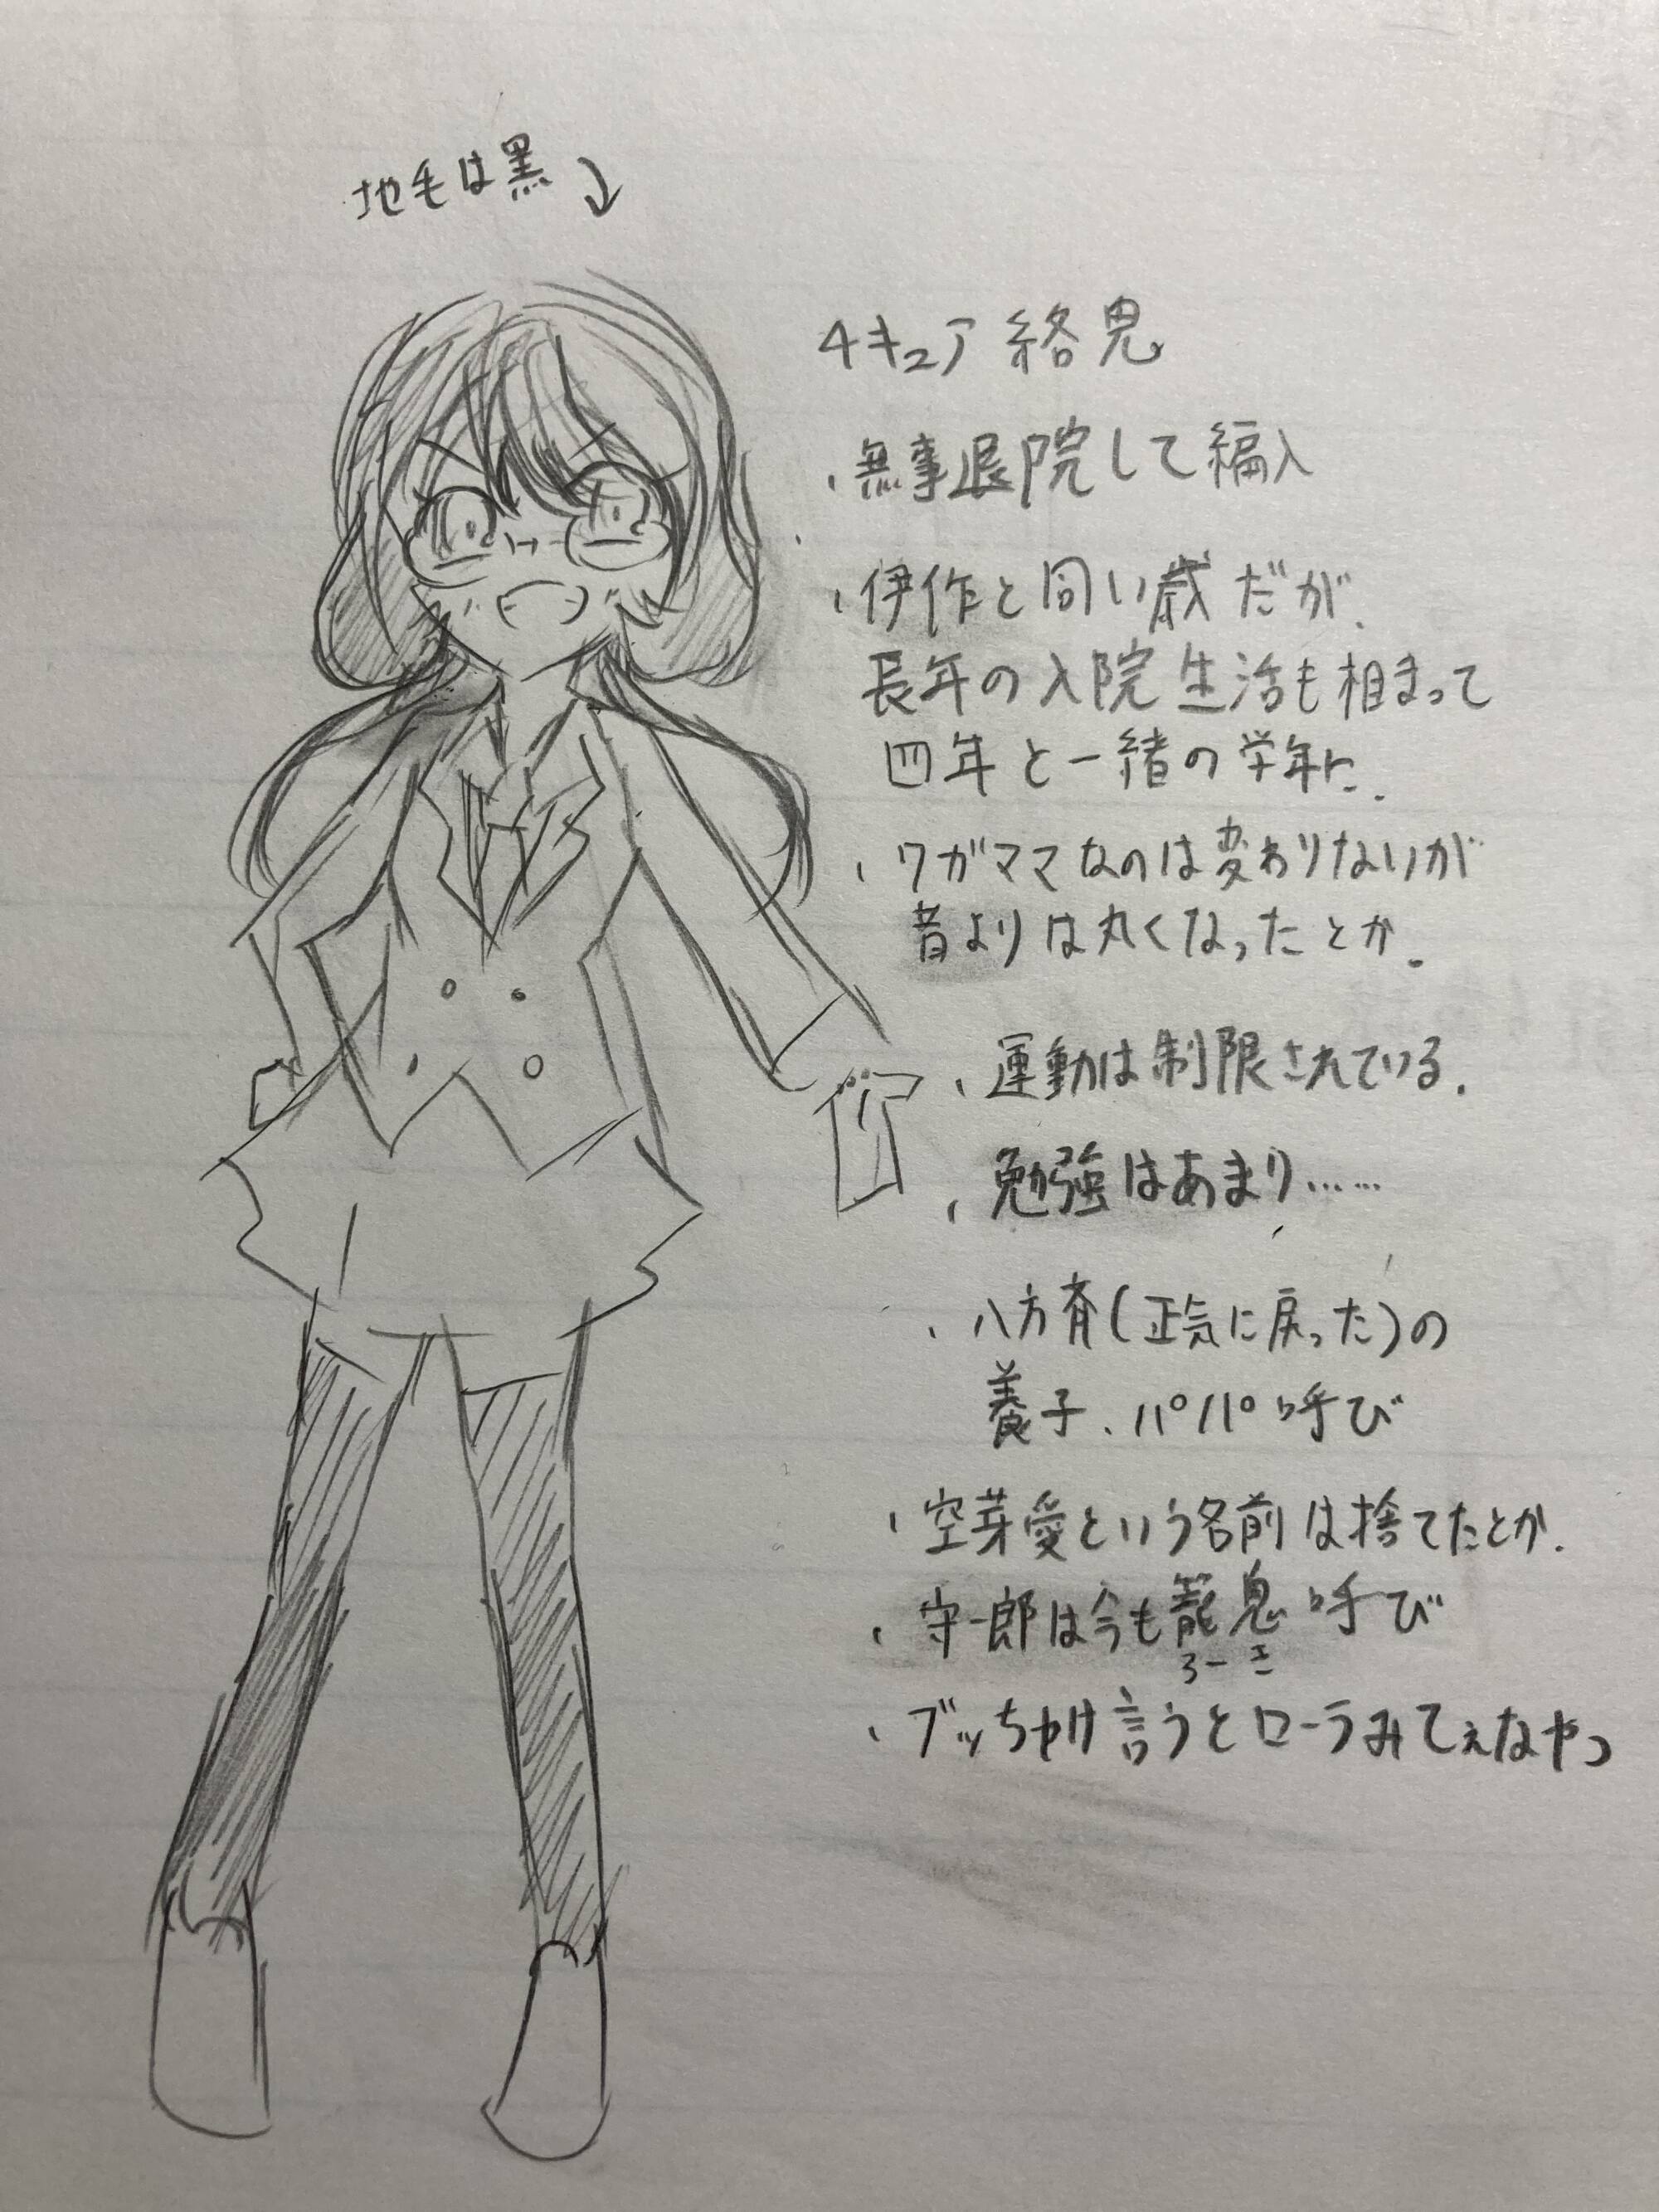 地毛は黒
4キュア 絡鬼
・無事退院して編入
・伊作と同い歳だが、
長年の入院生活も相まって
四年と一緒の学年に、
・ワガママなのは変わりないが
昔よりは丸くなったとか。
・運動は制限されている。
・勉強はあまり……
・八方斉(正気に戻った)の
養子、パパ呼び
・空芽愛という名前は捨てたとか。
・守一郎は今も篭鬼呼び
ろーき
・ブッちゃけ言うとローラみてぇなやつ